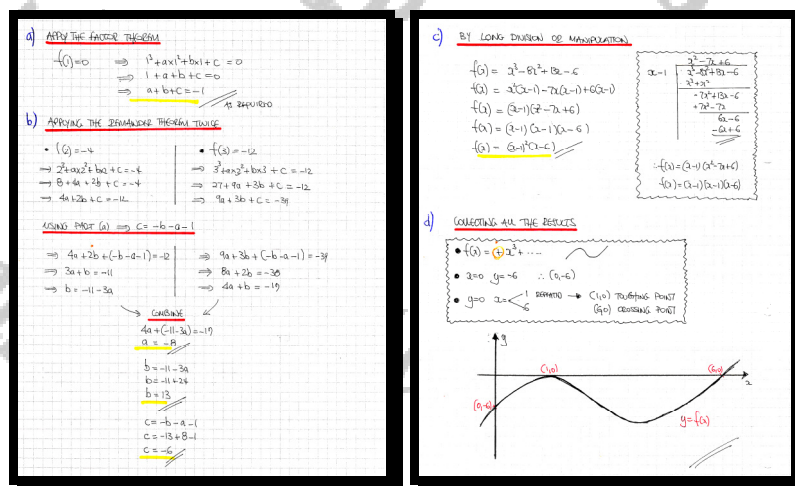 a) APPLY THE FACTOR THEOREM
f(1)=0 ⇒ 1³+a×1²+b×1+c=0
⇒ 1+a+b+c=0
⇒ a+b+c=-1
AS REQUIRED
b) APPLYING THE REMAINDER THEOREM TWICE
• f(2)=-4
⇒ 2³+a×2²+b×2+c=-4
⇒ 8+4a+2b+c=-4
⇒ 4a+2b+c=-12
• f(3)=-12
⇒ 3³+a×3²+b×3+c=-12
⇒ 27+9a+3b+c=-12
⇒ 9a+3b+c=-39
USING PART (a) ⇒ c=-b-a-1
⇒ 4a+2b+(-b-a-1)=-12
⇒ 3a+b=-11
⇒ b=-11-3a
⇒ 9a+3b+(-b-a-1)=-39
⇒ 8a+2b=-38
⇒ 4a+b=-19
COMBINE
4a+(-11-3a)=-19
a=-8
b=-11-3a
b=-11+24
b=13
c=-b-a-1
c=-13+8-1
c=-6
c) BY LONG DIVISION OR MANIPULATION
f(x)=x³-8x²+13x-6
f(x)=x²(x-1)-7x(x-1)+6(x-1)
f(x)=(x-1)(x²-7x+6)
f(x)=(x-1)(x-1)(x-6)
f(x)=(x-1)²(x-6)
x²-7x+6
x-1 x³-8x²+13x-6
-x³+x²
-7x²+13x-6
+7x²-7x
6x-6
-6x+6
∴f(x)=(x-1)(x²-7x+6)
f(x)=(x-1)(x-1)(x-6)
d) COLLECTING ALL THE RESULTS
• f(x)=+x³+.....
• x=0 y=-6 ∴(0,-6)
• y=0 x= 1 REPEATED → (1,0) TOUCHING POINT
6 (6,0) CROSSING POINT
y
(1,0)
(6,0)
x
(0,-6)
y=f(x)